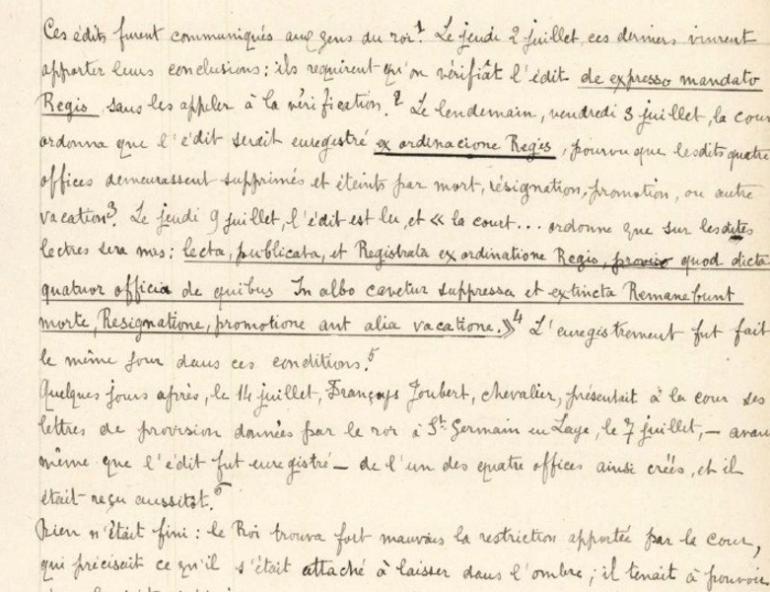 Ces édits furent communiqués aux gens du roi¹. Le jeudi 2 juillet, ces derniers vinrent
apporter leurs conclusions : ils requirent qu'on vérifiât l'édit de expresso mandato
Regis sans les appeler à la vérification.² Le lendemain, vendredi 3 juillet, la cour
ordonna que l'édit serait enregistré ex ordinacione Regis, pourvu que lesdits quatre
offices demeurassent supprimés et éteints par mort, résignation, promotion, ou autre
vacation³. Le jeudi 9 juillet, l'édit est lu, et « la court... ordonne que sur lesdites
lectres sera mis : lecta, publicata, et Registrata ex ordinatione Regis, proviso quod dicta
quatuor officia de quibus In albo cavetur suppressa et extincta Remanebunt
morte, Resignatione, promotione aut alia vacatione. »⁴ L'enregistrement fut fait
le même jour dans ces conditions.⁵
Quelques jours après, le 14 juillet, Françoys Joubert, chevalier, présentait à la cour ses
lettres de provision données par le roi à St-Germain en Laye, le 7 juillet, — avant
même que l'édit fut enregistré — de l'un des quatre offices ainsi créés, et il
était reçu aussitôt.⁶
Rien n'était fini : le Roi trouva fort mauvais la restriction apportée par la cour,
qui précisait ce qu'il s'était attaché à laisser dans l'ombre ; il tenait à pouvoir